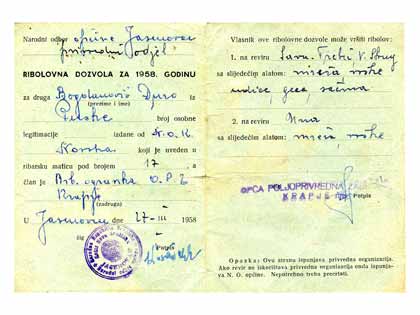 Narodni odbor općine Jasenovac
privredni odjel
RIBOLOVNA DOZVOLA ZA 1958. GODINU
za druga Bogdanović Djuro iz
(prezime i ime)
Puske broj osobne
legitimacije izdane od N.O.K.
Novska koji je uveden u
ribarsku maticu pod brojem 17, a
član je Rib. ogranka O.P.Z.
Krapje
(zadruga)
U Jasenovcu dne 27-III 1958
Potpis
Vlasnik ove ribolovne dozvole može vršiti ribolov:
1. na reviru Sava, Trebež V. Strug
sa slijedećim alatom: mreža vrške
udice,
2. na reviru Una
sa slijedećim alatom: mreža, vrške
OPĆA POLJOPRIVREDNA ZADRUGA
KRAPJE
Potpis
Opaska: Ovu stranu ispunjava privredna organizacija.
Ako revir ne iskorištava privredna organizacija onda ispunja-
va N. O. općine. Nepotrebno treba precrtati.